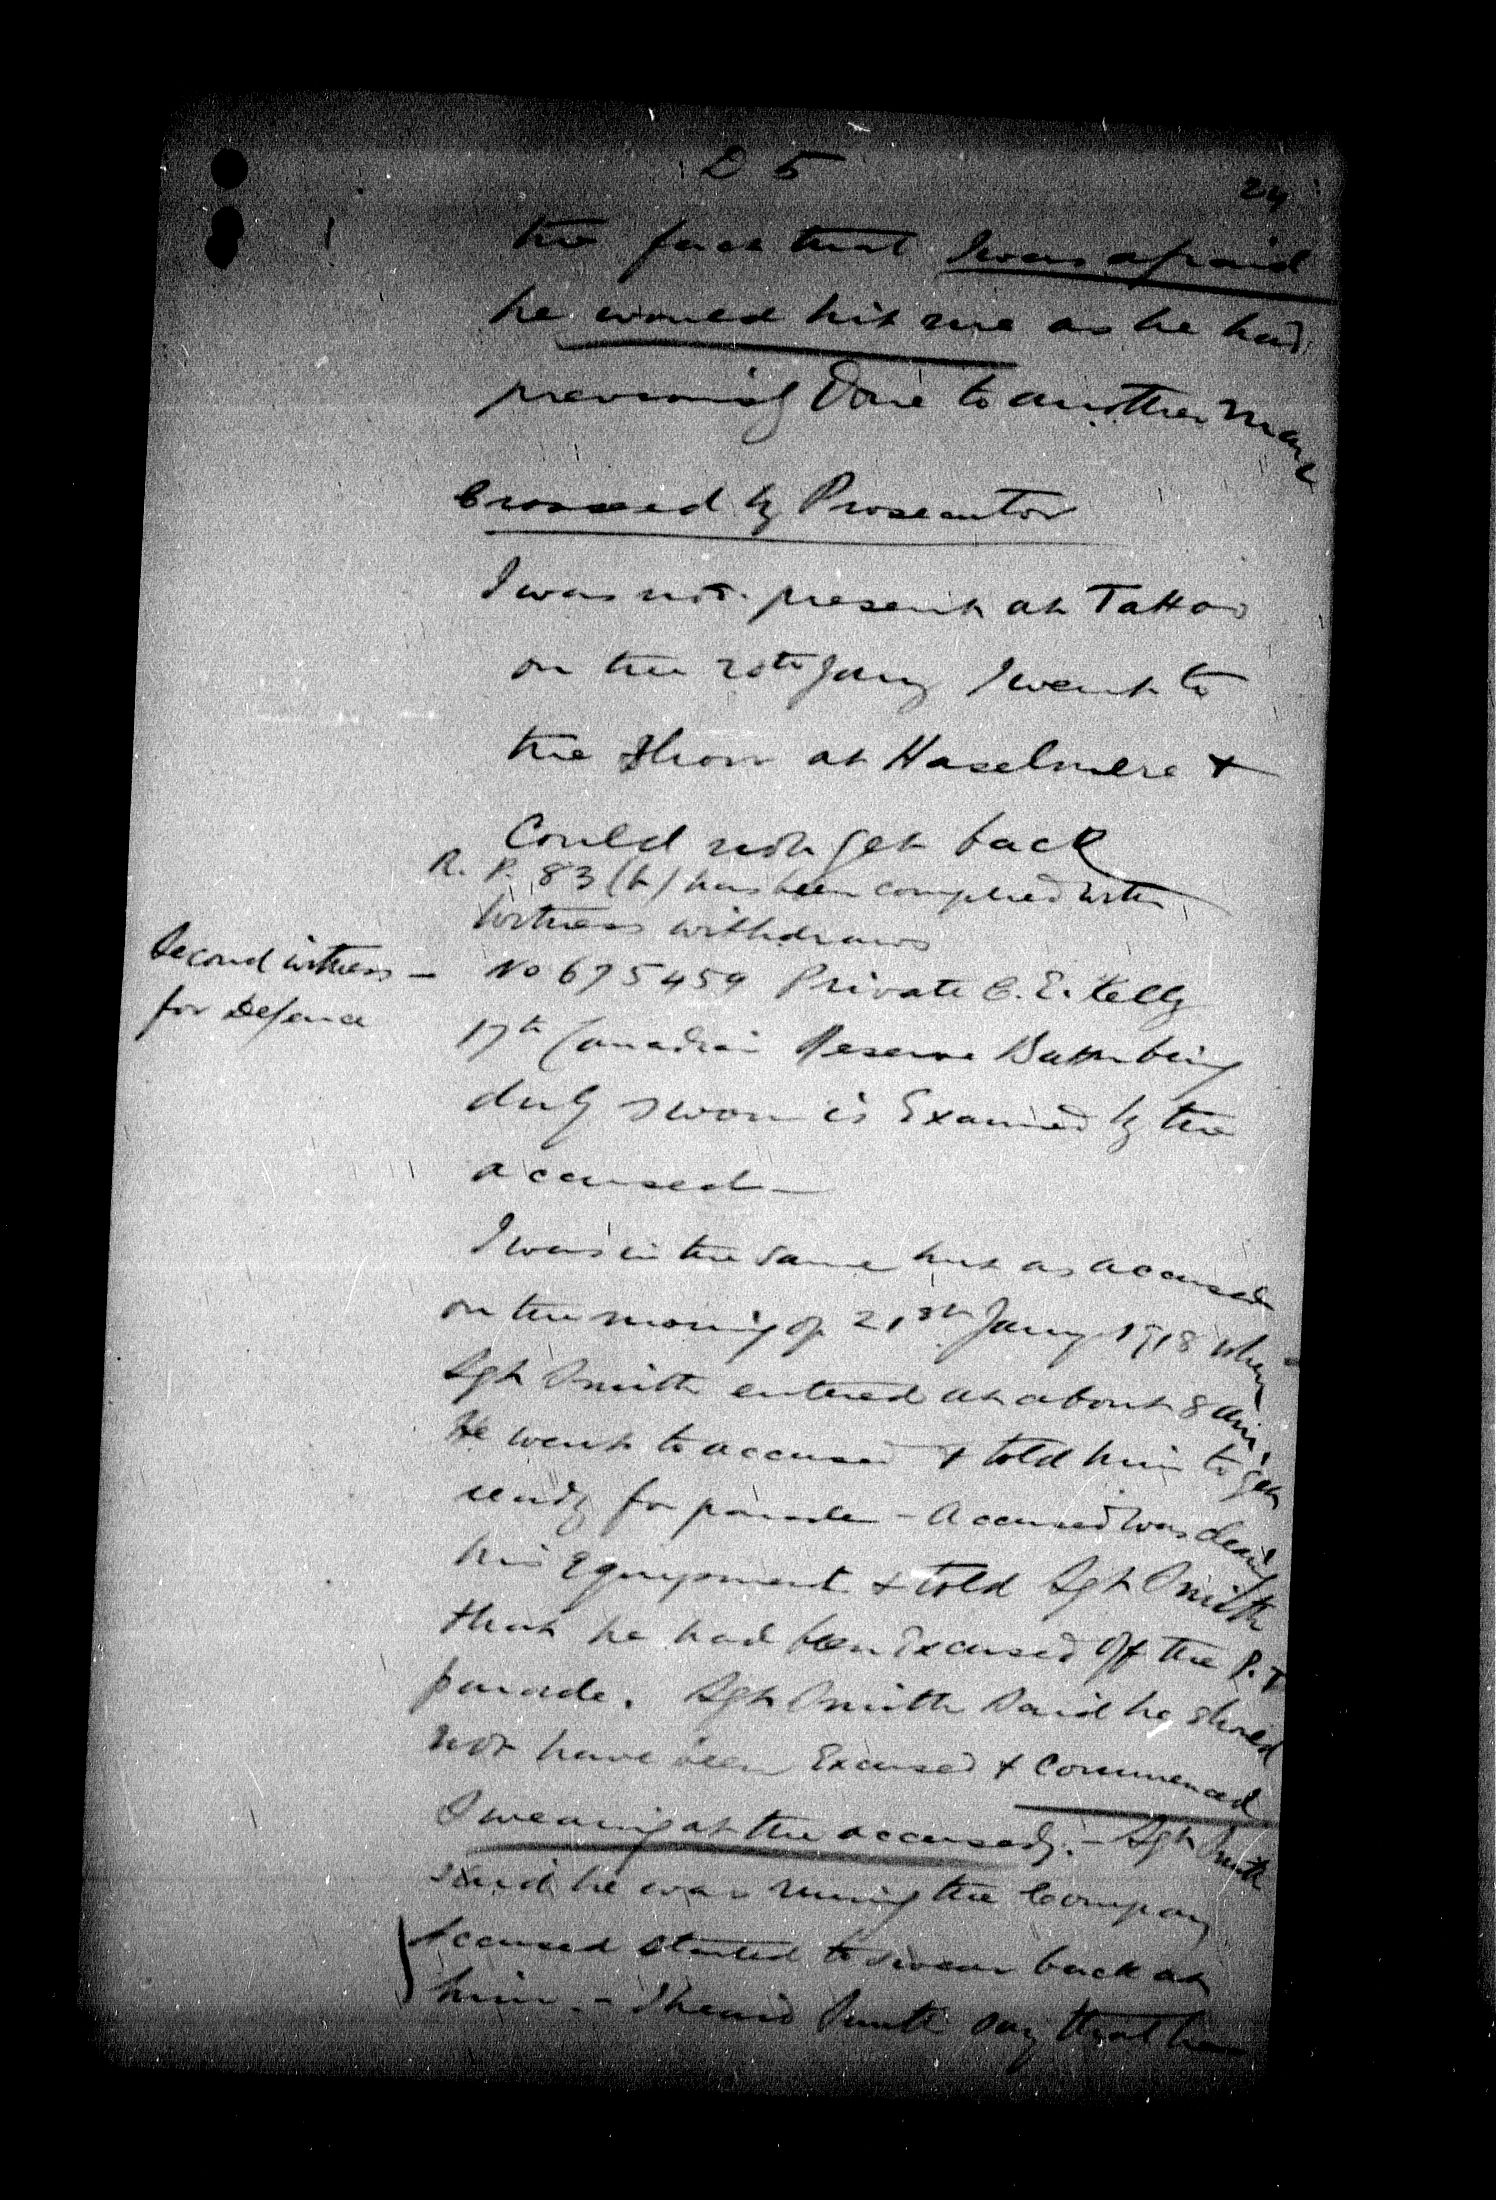 D 5
24
the fact that I was afraid
he would hit me as he had
previously done to another man
Crossed by Prosecutor
I was not present at Tattoo
on the 20th Jany I went to
the show at Haselmere +
Could not get back
R. P. 83 (b) has been complied with
Witness withdraws
Second witness —
for Defence
No 675459 Private C. E. Kelly
17th Canadian Reserve Battn being
duly sworn is Examined by the
accused —
I was in the same hut as accused
on the morning of 21st Jany 1918 when
Sgt Smith entered at about 8 am.
He went to accused + told him to get
ready for parade - Accused was cleaning
his Equipment + told Sgt Smith
that he had been Excused off the P.T
parade. Sgt Smith said he should
not have been Excused + Commenced
Swearing at the accused. - Sgt Smith
said he was running the Company
Accused started to swear back at
him. - I heard Smith say that he